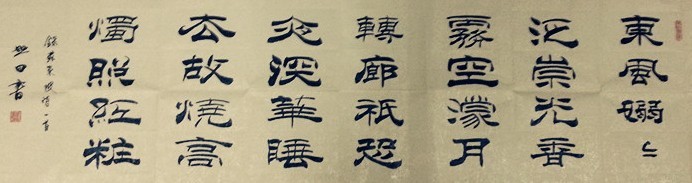 東風嫋〻
泛崇光香
霧空濛月
轉廊祇恐
夜深華睡
去故燒高
燭照紅粧
錄蘇東坡詩一首
書